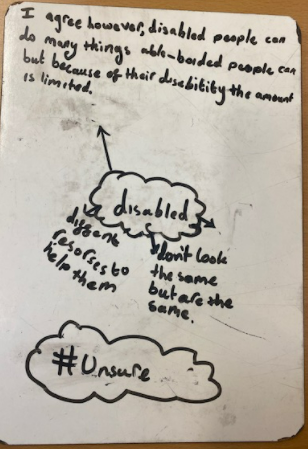 I agree however, disabled people can
do many things able-boided people can
but because of their disebitity the amount
is limited.
disabled
diffent
resorses to
help them
don't look
the same
but are the
same.
#Unsure